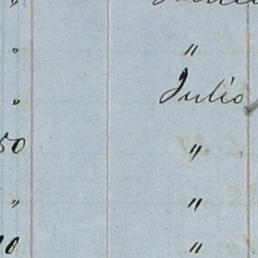 "
" "
" Julio
50 "
" "
10 "